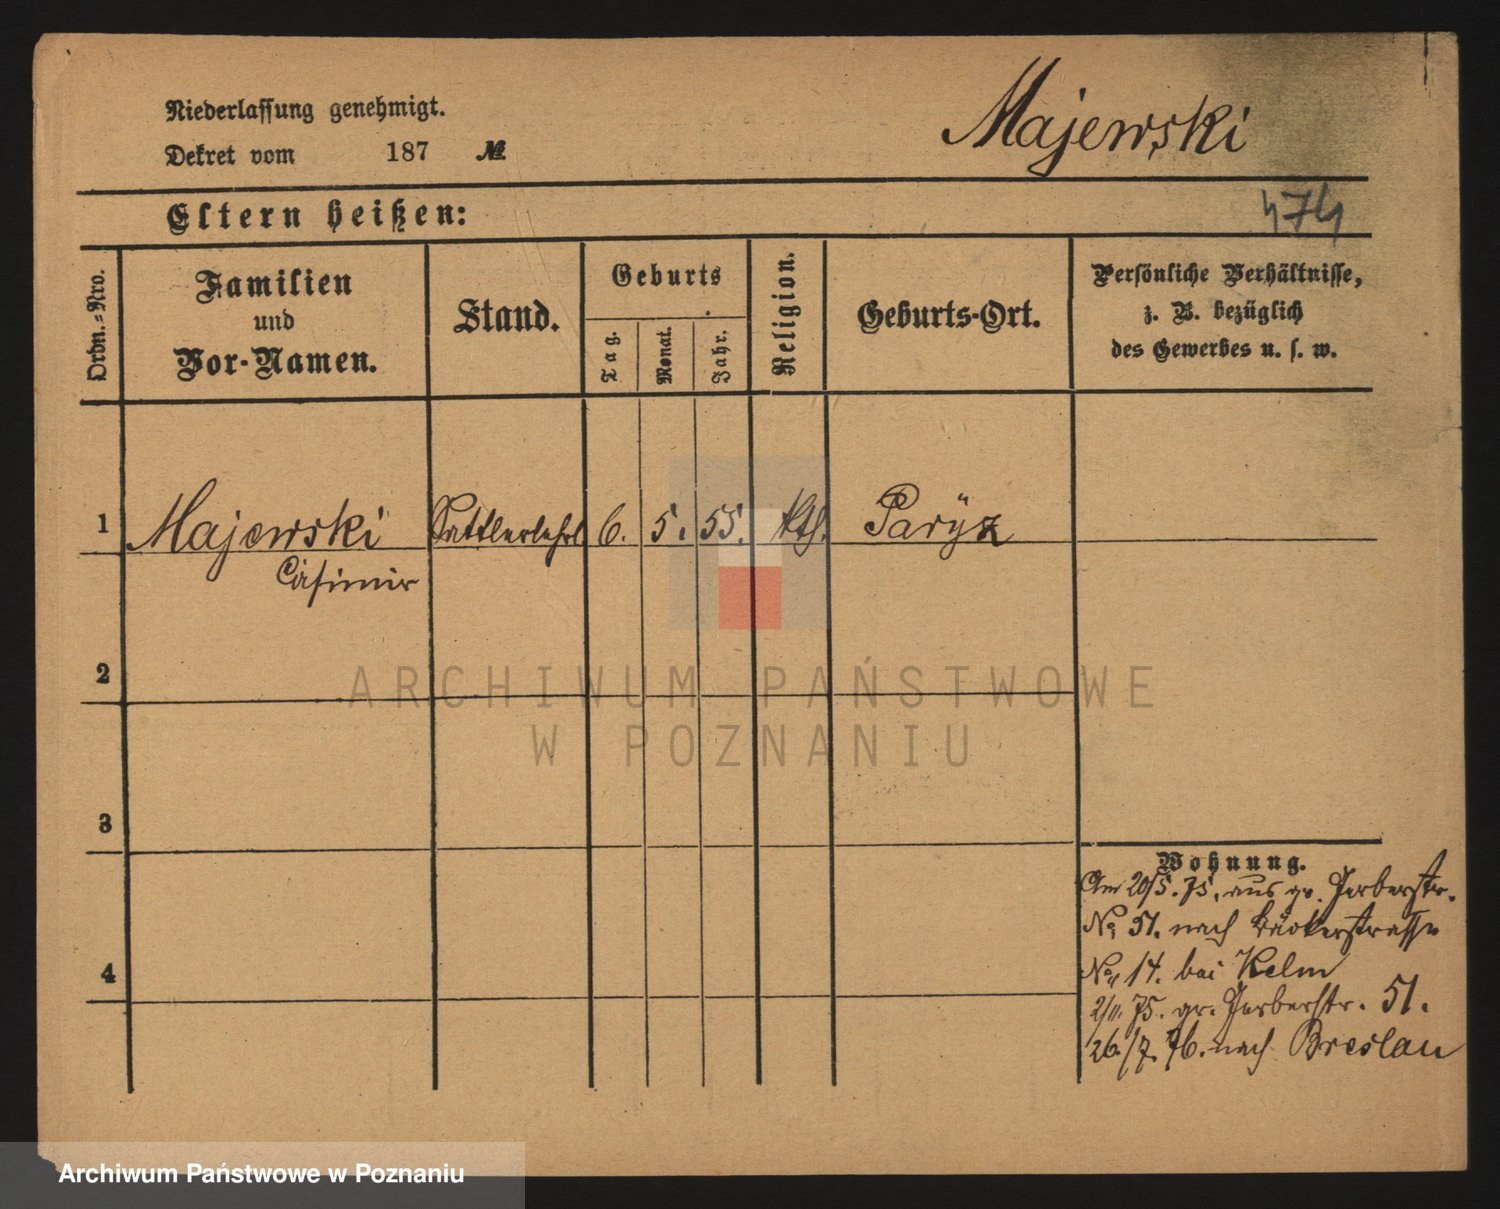 Niederlassung genehmigt.
Dekret vom 187 №
Majewski
Eltern heißen:
474
Ordn.-Nro.
Familien
und
Vor-Namen.
Stand.
Geburts
Tag.
Monat.
Jahr.
Religion.
Geburts-Ort.
Persönliche Verhältnisse,
z. B. bezüglich
des Gewerbes u. s. w.
1 Majewski Sattlerlehrl 6. 5. 55. kth. Parÿz
Casimir
2
3
4
Wohnung.
Am 20/5. 75. aus gr. Gerberstr.
No. 51. nach Bäckerstrasse
No. 14. bei Kelm
2/11. 75. gr. Gerberstr. 51.
26./7. 76. nach Breslau
ARCHIWUM PAŃSTWOWE
W POZNANIU
Archiwum Państwowe w Poznaniu